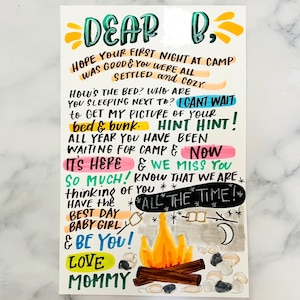 DEAR B,
HOPE YOUR FIRST NIGHT AT CAMP
WAS GOOD & YOU WERE ALL
SETTLED and COZY
HOW'S THE BED? WHO ARE
YOU SLEEPING NEXT TO? I CAN'T WAIT
to GET MY PICTURE OF YOUR
bed & bunk HINT HINT!
ALL YEAR YOU HAVE BEEN
WAITING FOR CAMP & NOW
IT'S HERE & WE MISS YOU
SO MUCH! KNOW THAT WE ARE
thinking OF YOU ALL THE TIME!
HAVE the
BEST DAY
BABY GIRL!
& BE YOU!
LOVE
MOMMY